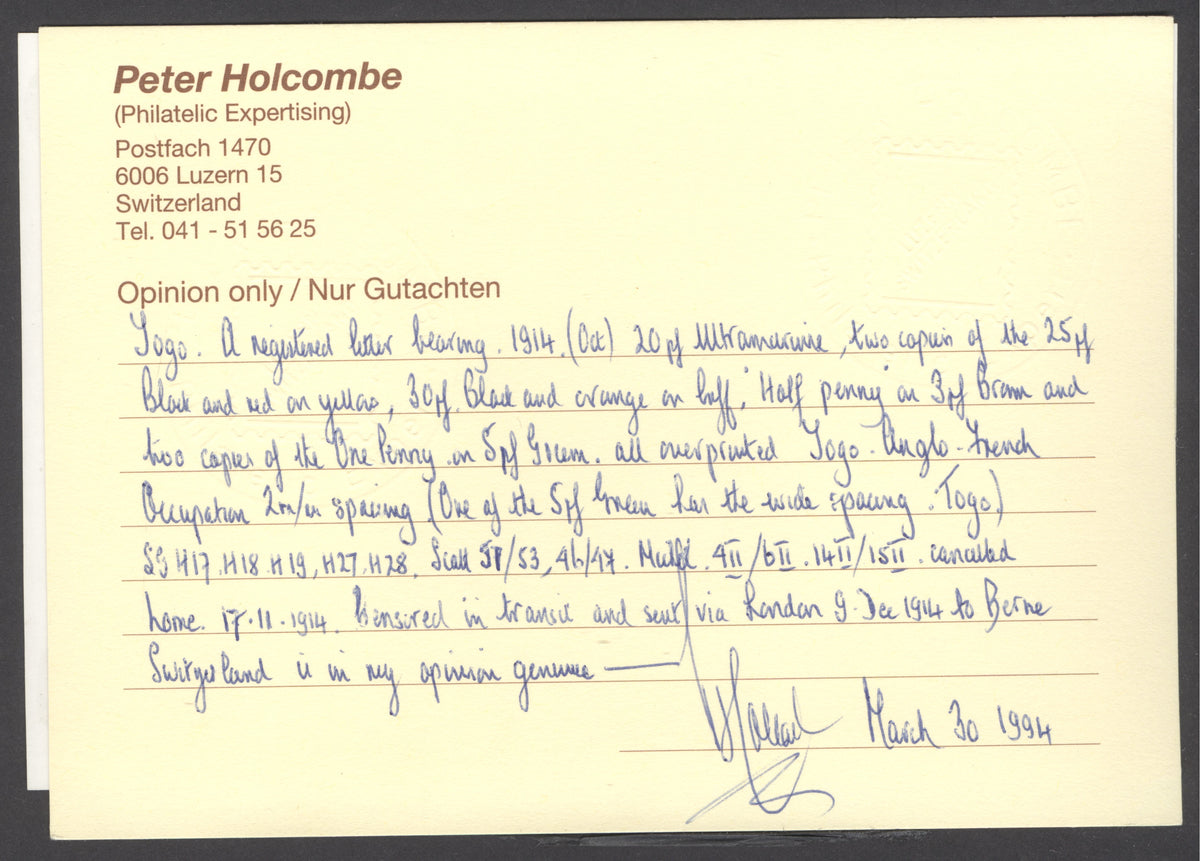 Peter Holcombe
(Philatelic Expertising)
Postfach 1470
6006 Luzern 15
Switzerland
Tel. 041 - 51 56 25
Opinion only / Nur Gutachten
Togo. A registered letter bearing. 1914. (Oct) 20pf Ultramarine, two copies of the 25pf
Black and red on yellow, 30pf. Black and orange on buff, "Half penny" on 3pf Brown and
two copies of the One Penny on 5pf Green. all overprinted Togo. Anglo-French
Occupation 2m/m spacing (One of the 5pf Green has the wide spacing. Togo)
SG H17. H18. H19, H27, H28. Scott /53, 46/47. 4II/6II. 14II/15II. cancelled
Lome. 17.11.1914. Censored in transit and sent via London 9. Dec 1914 to Berne
Switzerland is in my opinion genuine
March 30 1994